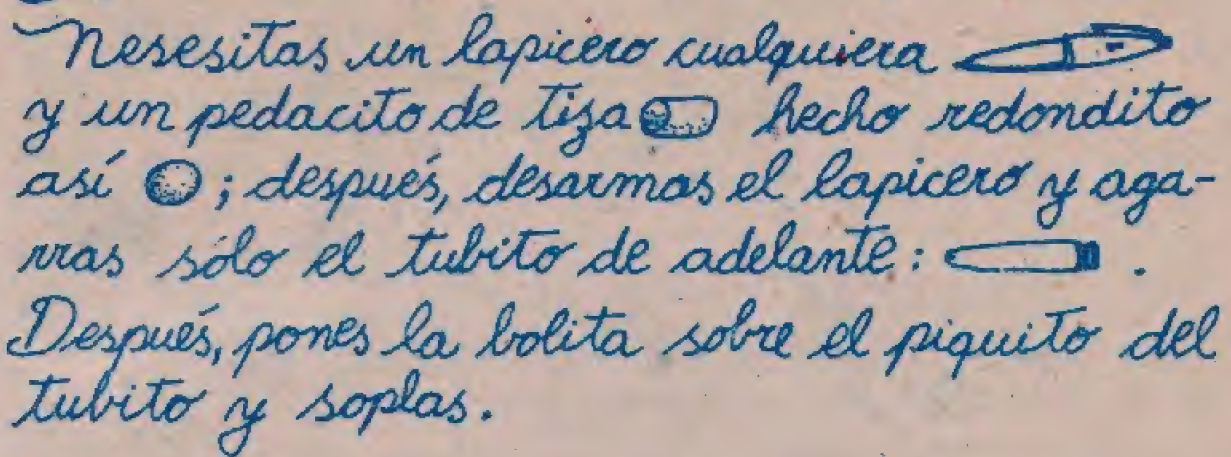 Nesesitas un lapicero cualquiera
y un pedacito de tiza hecho redondito
así ; después, desarmas el lapicero y aga-
rras sólo el tubito de adelante: .
Después, pones la bolita sobre el piquito del
tubito y soplas.